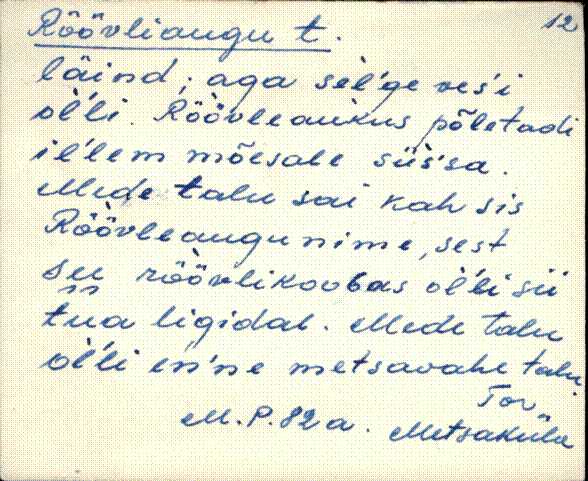 Röövliaugu t. 12
läind; aga sel'ge ves'i
ol'li. Röövleaukus põletadi
il'lem mõesale süs'sa.
Mede talu sai kah sis
Röövleaugu nime, sest
see röövlikoobas ol'li sii
tua ligidal. Mede talu
ol'li en'ne metsavahe talu.
Tor,
M.P. 82 a. Metsaküla